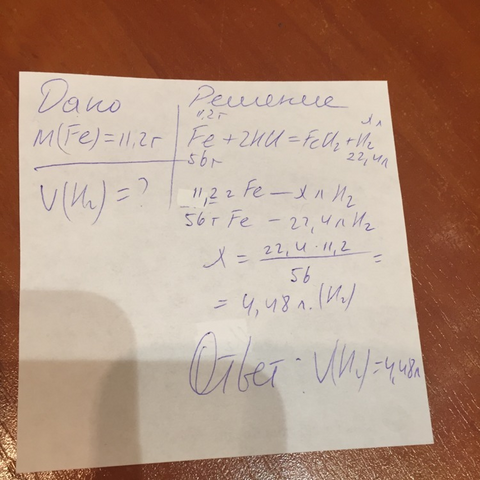 Дано
m(Fe)=11,2г
V(H₂)=?
Решение
11,2г x л
Fe+2HCl=FeCl₂+H₂
56г 22,4л
11,2г Fe — x л H₂
56г Fe – 22,4л H₂
x = 22,4·11,2 / 56 =
= 4,48 л. (H₂)
Ответ: V(H₂)=4,48л